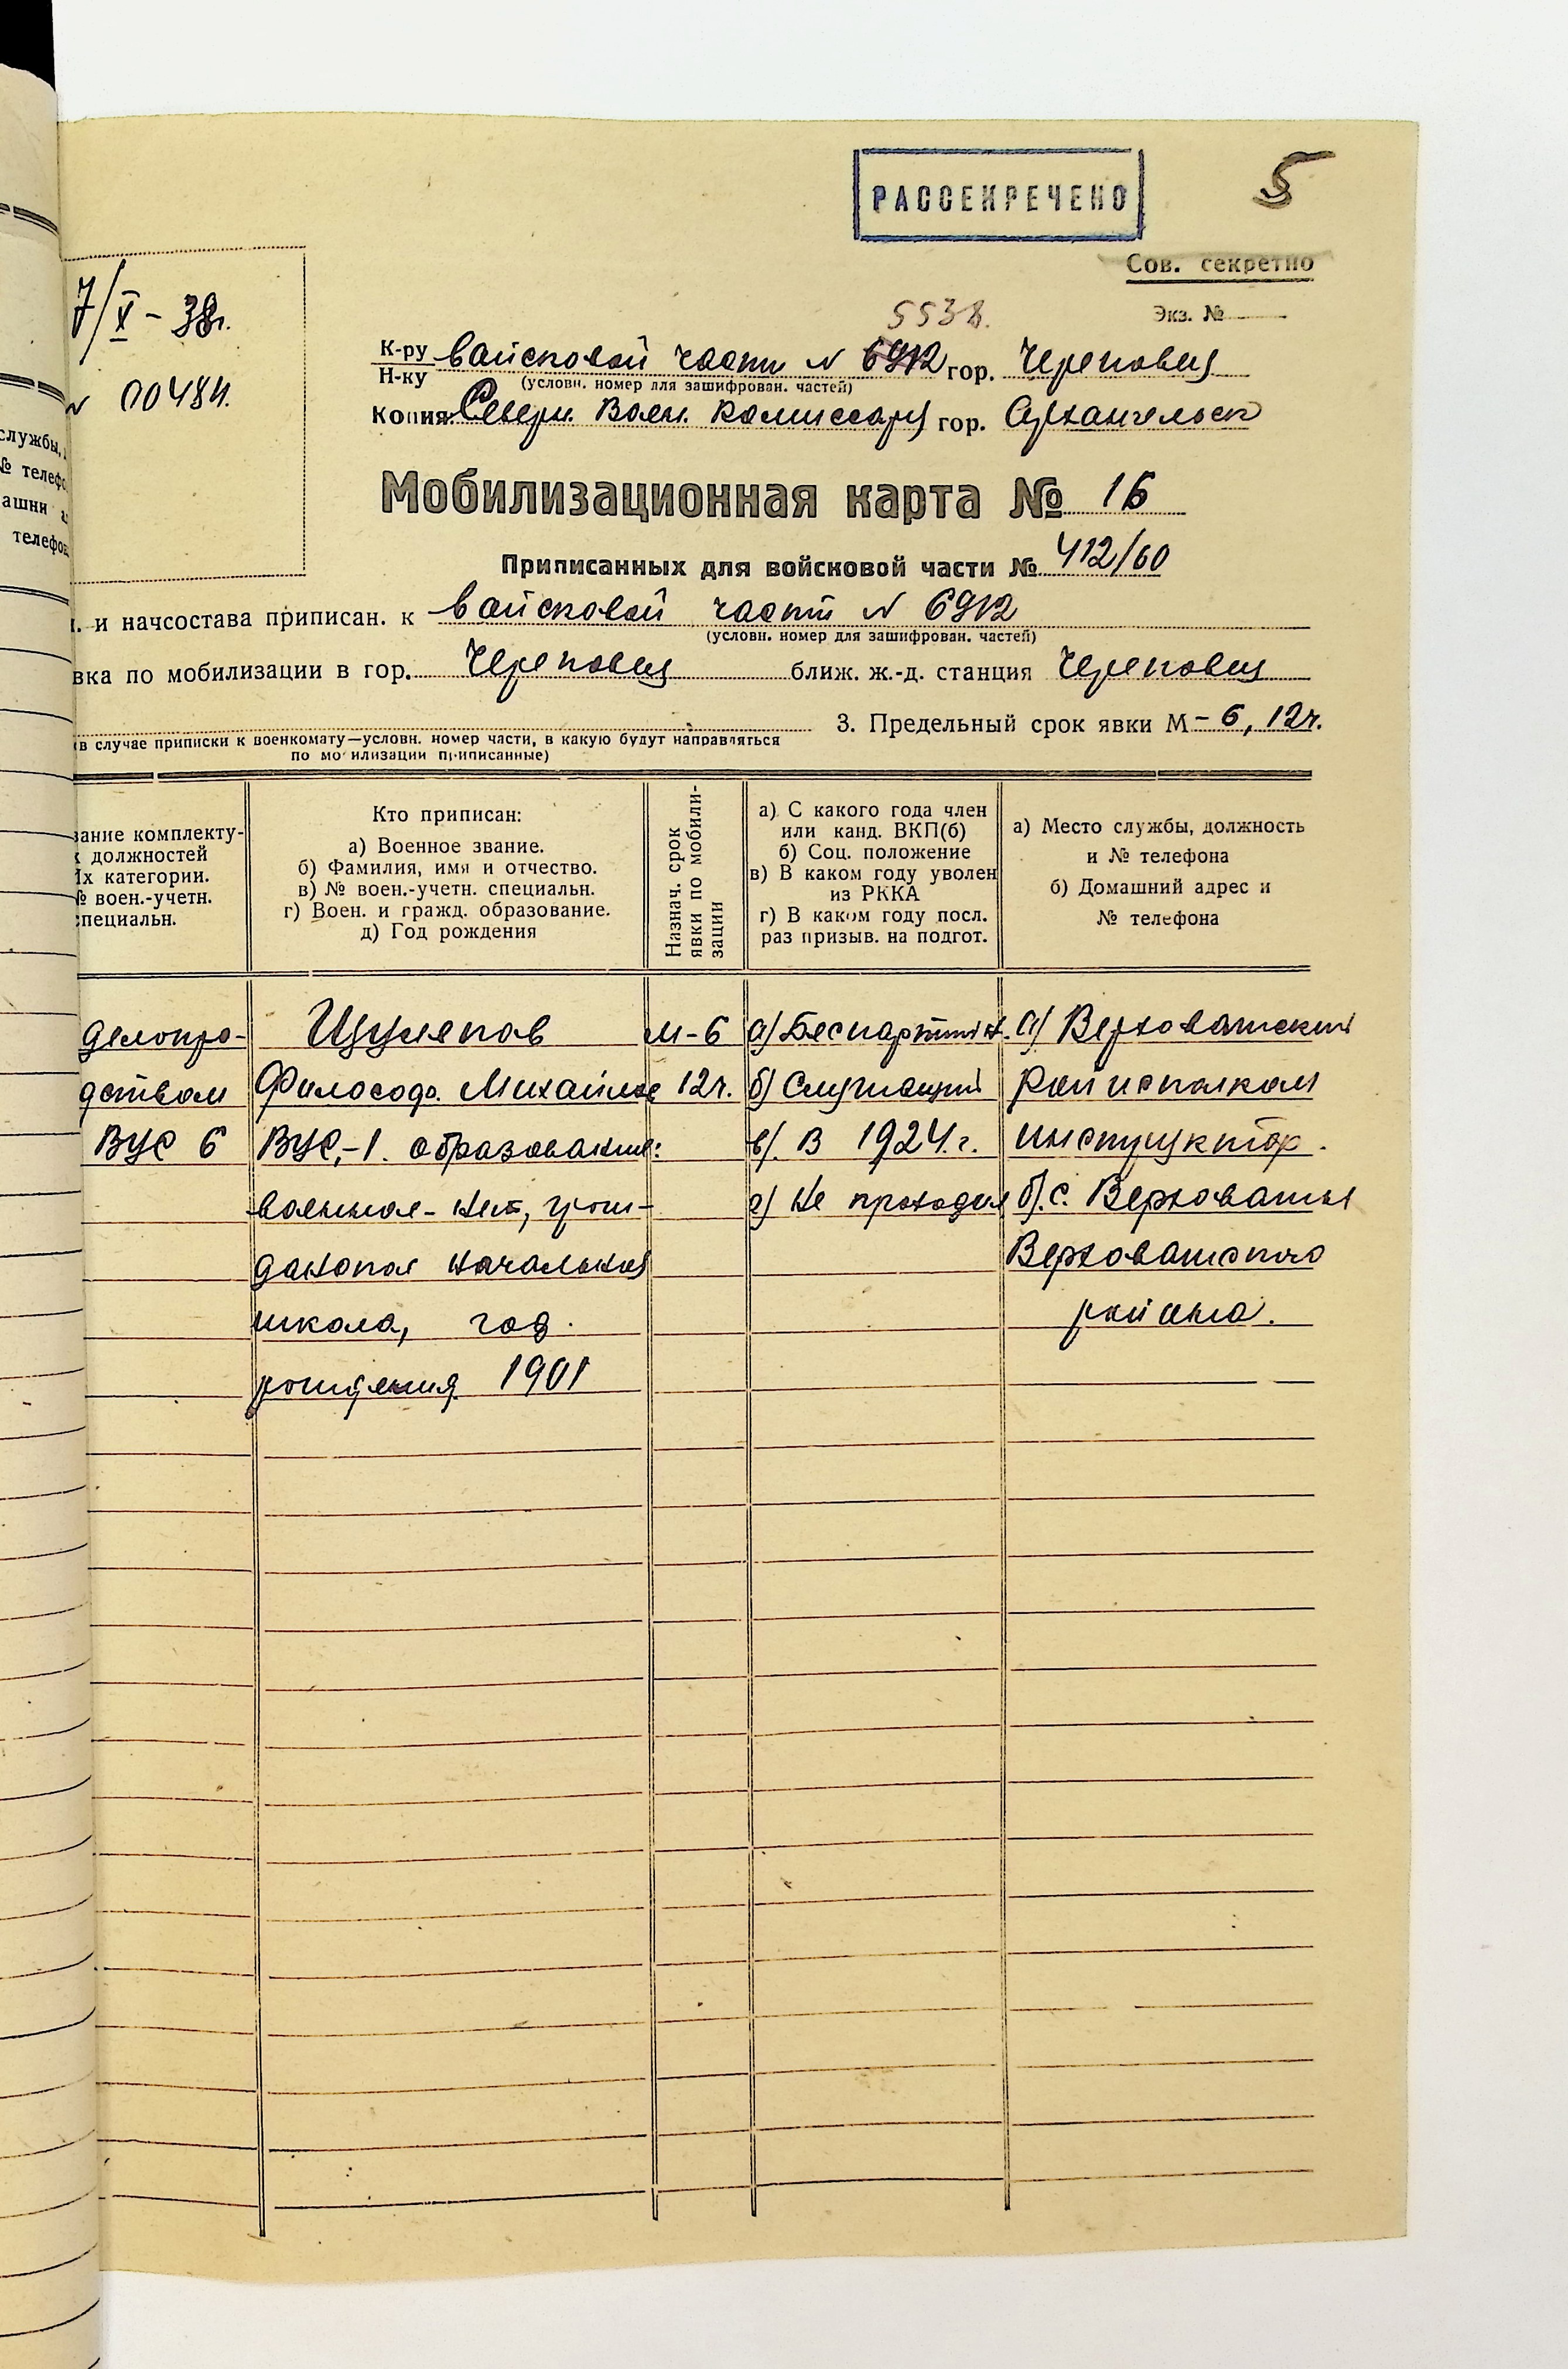 РАССЕКРЕЧЕНО
5
Сов. секретно
Экз. №
7/X – 38г.
5538.
К-ру войсковой части N 6912 гор. Череповец
Н-ку (условн. номер для зашифрован. частей)
N 00484.
Копия: Северн. Воен. Комиссару гор. Архангельск
службы,
№ телефо
ашни
телефон
Мобилизационная карта № 16
Приписанных для войсковой части № 412/60
и начсостава приписан. к войсковой части N 6912
(условн. номер для зашифрован. частей)
вка по мобилизации в гор. Череповец ближ. ж.-д. станция Череповец
3. Предельный срок явки М – 6, 12ч.
(в случае приписки к военкомату—условн. номер части, в какую будут направляться
по мобилизации приписанные)
вание комплекту-
х должностей
их категории.
№ воен.-учетн.
специальн.
Кто приписан:
а) Военное звание.
б) Фамилия, имя и отчество.
в) № воен.-учетн. специальн.
г) Воен. и гражд. образование.
д) Год рождения
Назнач. срок
явки по мобили-
зации
а) С какого года член
или канд. ВКП(б)
б) Соц. положение
в) В каком году уволен
из РККА
г) В каком году посл.
раз призыв. на подгот.
а) Место службы, должность
и № телефона
б) Домашний адрес и
№ телефона
делопро-
дством
ВУС 6
Философ. Михайлов
ВУС-1. образование:
военное - нет, граж-
данское начальная
школа, год
рождения 1901
М-6
12ч.
а) Беспартийн.
б) Служащий
в). В 1924.г.
г) Не проходил
а) Верховажский
Райисполком
инструктор.
б). с. Верховажье
Верховажского
района.